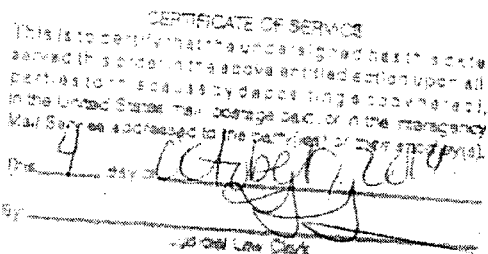 CERTIFICATE OF SERVICE
This is to certify that the undersigned has this date
served this order in the above entitled action upon all
parties to this cause by depositing a copy hereof,
in the United States mail, postage paid, or in the interagency
Mail Service addressed to the part(ies) or their attorney(s).
This 4 day of October, 2014.
By
Judicial Law Clerk